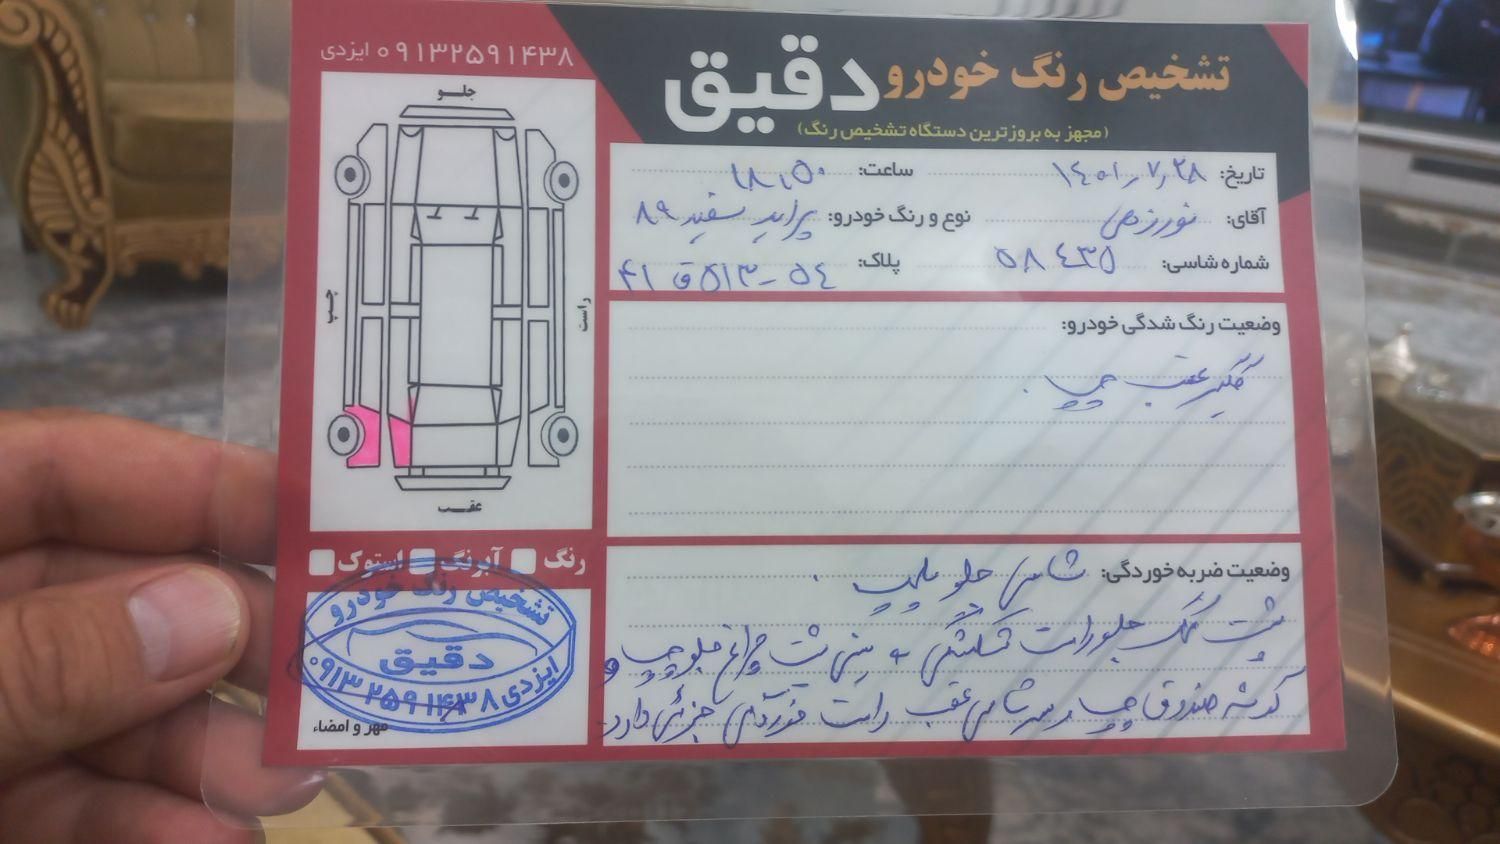 تشخیص رنگ خودرو دقیق
(مجهز به بروزترین دستگاه تشخیص رنگ)
۰۹۱۳۲۵۹۱۴۳۸ ایزدی
تاریخ: ۱۴۰۱٫۷٫۲۸ ساعت: ۱۸٫۵۰
آقای: نوع و رنگ خودرو: پراید سفید ۸۹
شماره شاسی: ۵۸۴۳۵ پلاک: ۵۴ - ۵۱۳ ق ۴۱
جلو
چپ
راست
عقب
وضعیت رنگ شدگی خودرو:
گلگیر عقب چپ.
رنگ آبرنگ استوک
وضعیت ضربه خوردگی: شاسی جلو پلمپ.
پشت گلگیر جلو راست شکستگی و سینی پشت چراغ جلو چپ و
گوشه صندوق چپ و سر شاسی عقب راست خوردگی جزئی دارد.
تشخیص رنگ خودرو
دقیق
ایزدی ۰۹۱۳۲۵۹۱۴۳۸
مهر و امضاء